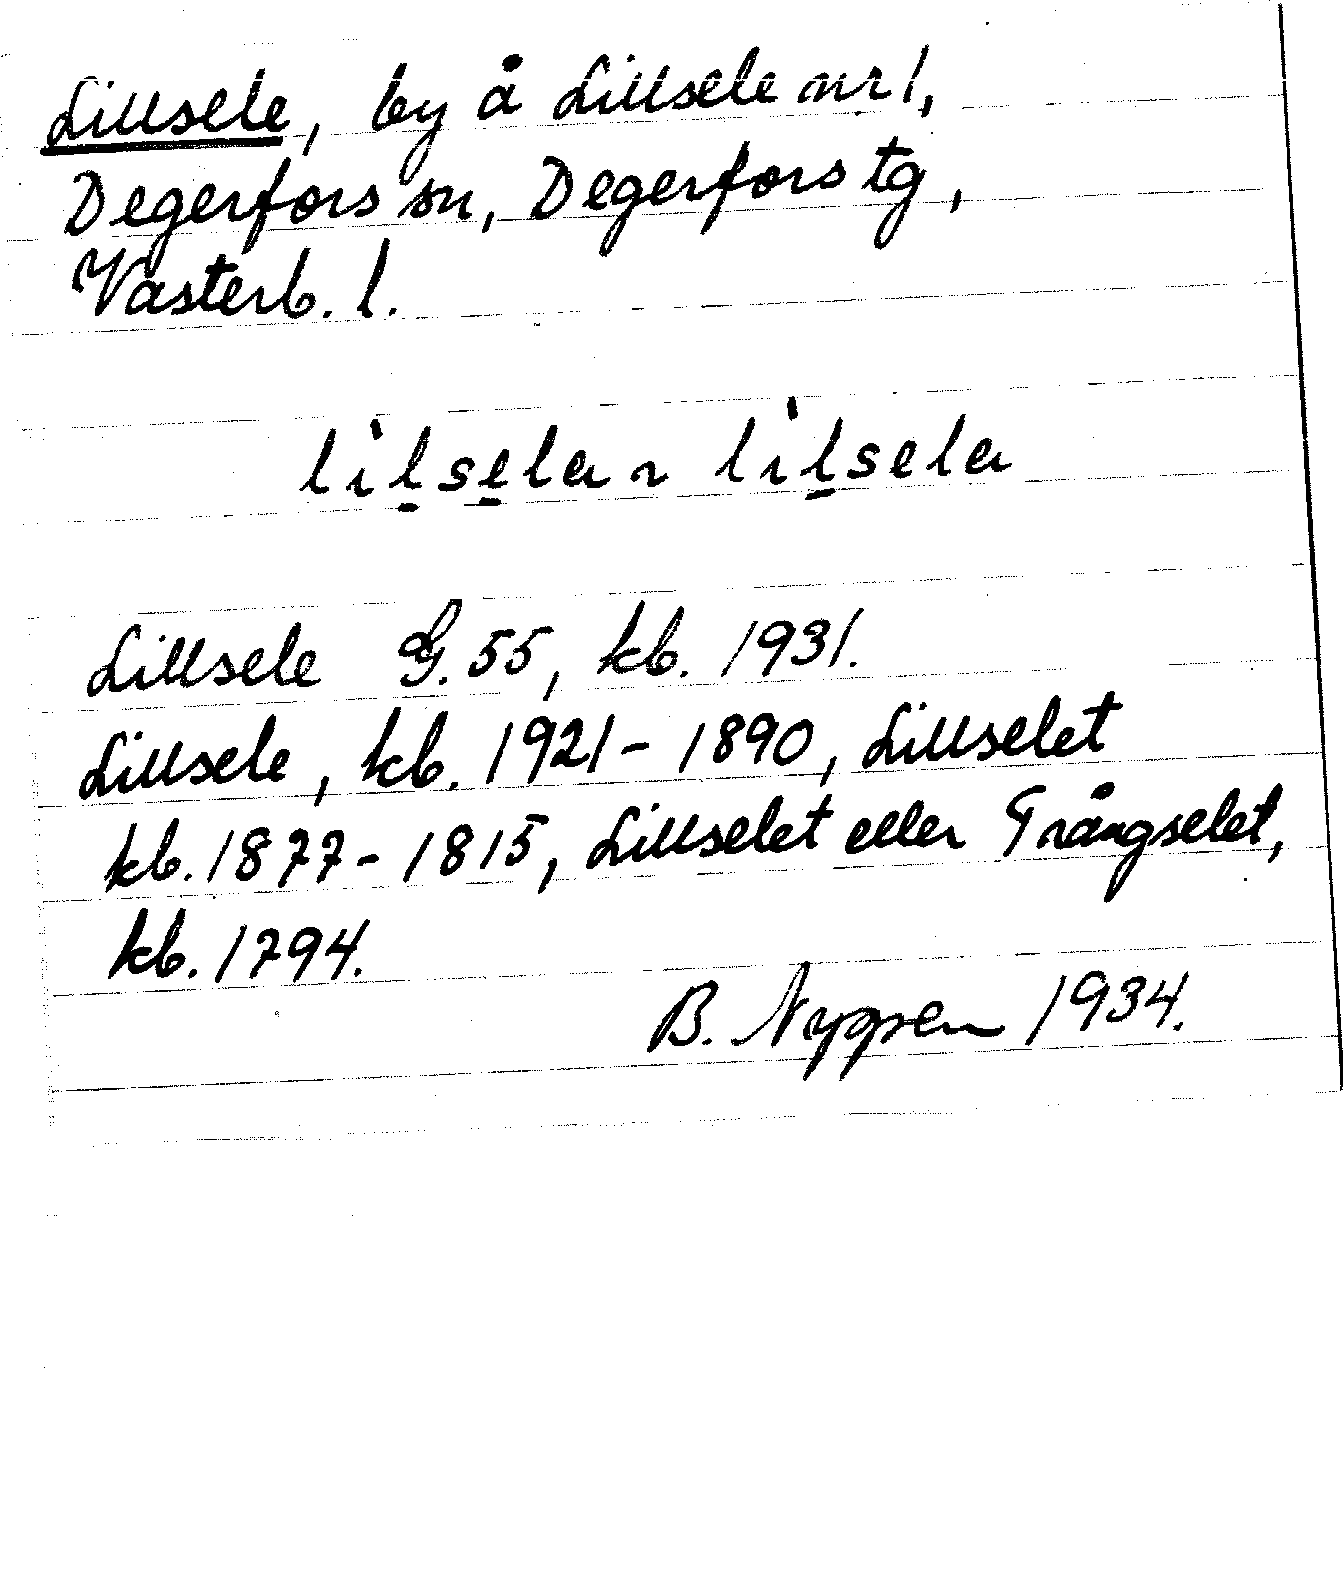 Lillsele, by å Lillsele nr 1,
Degerfors sn, Degerfors tg,
Västerb. l.
li`l̲se̲la ~ li`l̲sela
Lillsele G. 55, kb. 1931.
Lillsele, kb. 1921-1890, Lillselet
kb. 1877-1815, Lillselet eller Trångselet,
kb. 1794.
B. Nygren 1934.